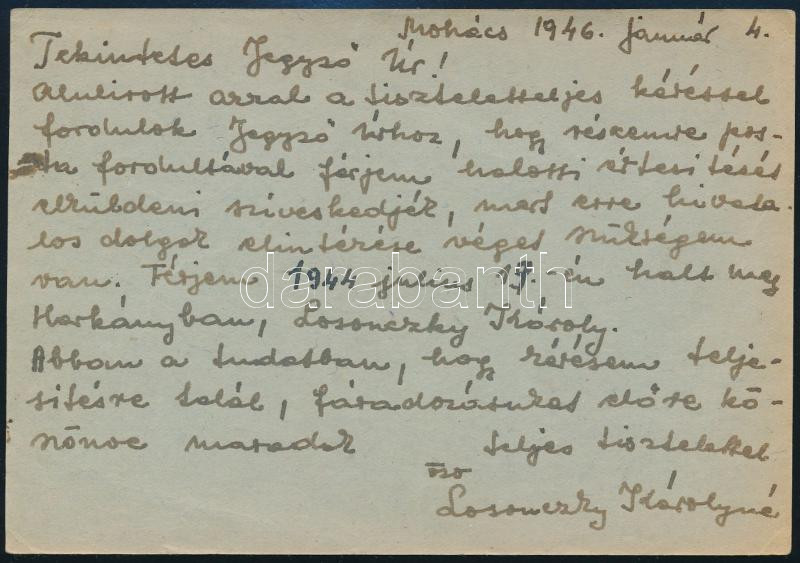 Mohács 1946. január 4.
Tekintetes Jegyző Úr!
Alulirott azzal a tiszteletteljes kéréssel
fordulok Jegyző Úrhoz, hogy részemre pos-
ta fordultával férjem halotti értesitését
elküldeni sziveskedjék, mert erre hivata-
los dolgok elintézése végett szükségem
van. Férjem 1944 julius 17.-én halt meg
Harkányban, Losonczky Károly.
Abban a tudatban, hogy kérésem telje-
sitésre talál, fáradozásukat előre kö-
szönve maradok teljes tisztelettel
özv
Losonczky Károlyné
darabanth